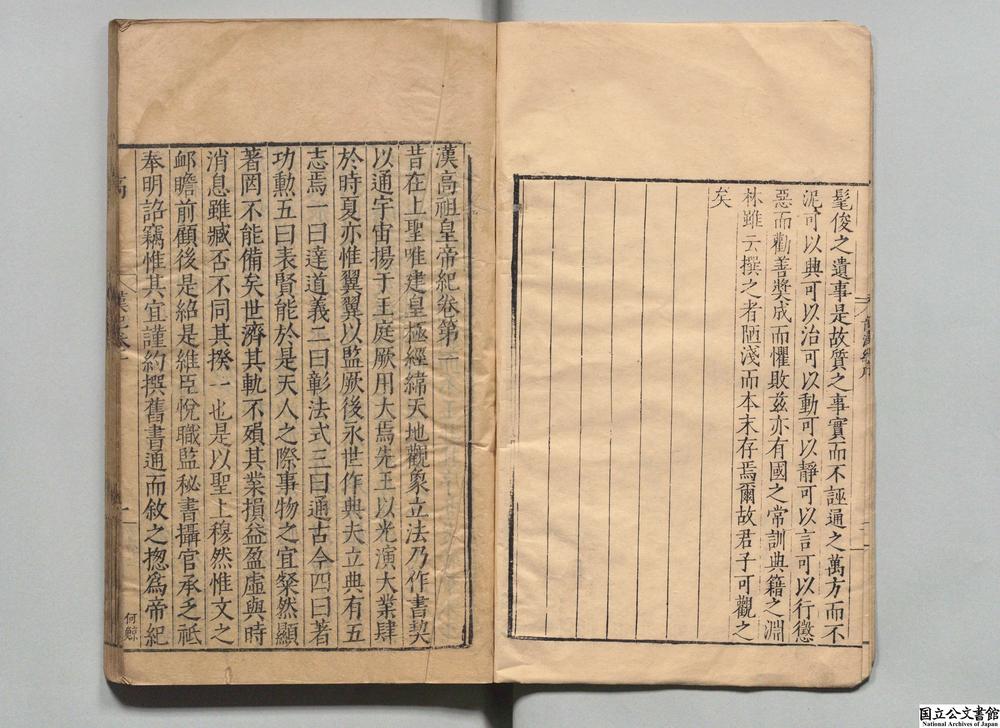 髦俊之遺事是故質之事實而不誣通之萬方而不
泥可以典可以治可以動可以靜可以言可以行懲
惡而勸善奬成而懼敗茲亦有國之常訓典籍之淵
林雖云撰之者陋淺而本末存焉爾故君子可觀之
矣
漢高祖皇帝紀卷第一
昔在上聖唯建皇極經緯天地觀象立法乃作書契
以通宇宙揚于王庭厥用大焉先王以光演大業肆
於時夏亦惟翼翼以監厥後永世作典夫立典有五
志焉一曰達道義二曰彰法式三曰通古今四曰著
功勲五曰表賢能於是天人之際事物之宜粲然顯
著罔不能備矣世濟其軌不殞其業損益盈虛與時
消息雖臧否不同其揆一也是以聖上穆然惟文之
卹瞻前顧後是紹是維臣悅職監秘書攝官承乏祗
奉明詔竊惟其宜謹約撰舊書通而敘之揔爲帝紀
高
漢紀卷一
一
何鯨
国立公文書館
National Archives of Japan